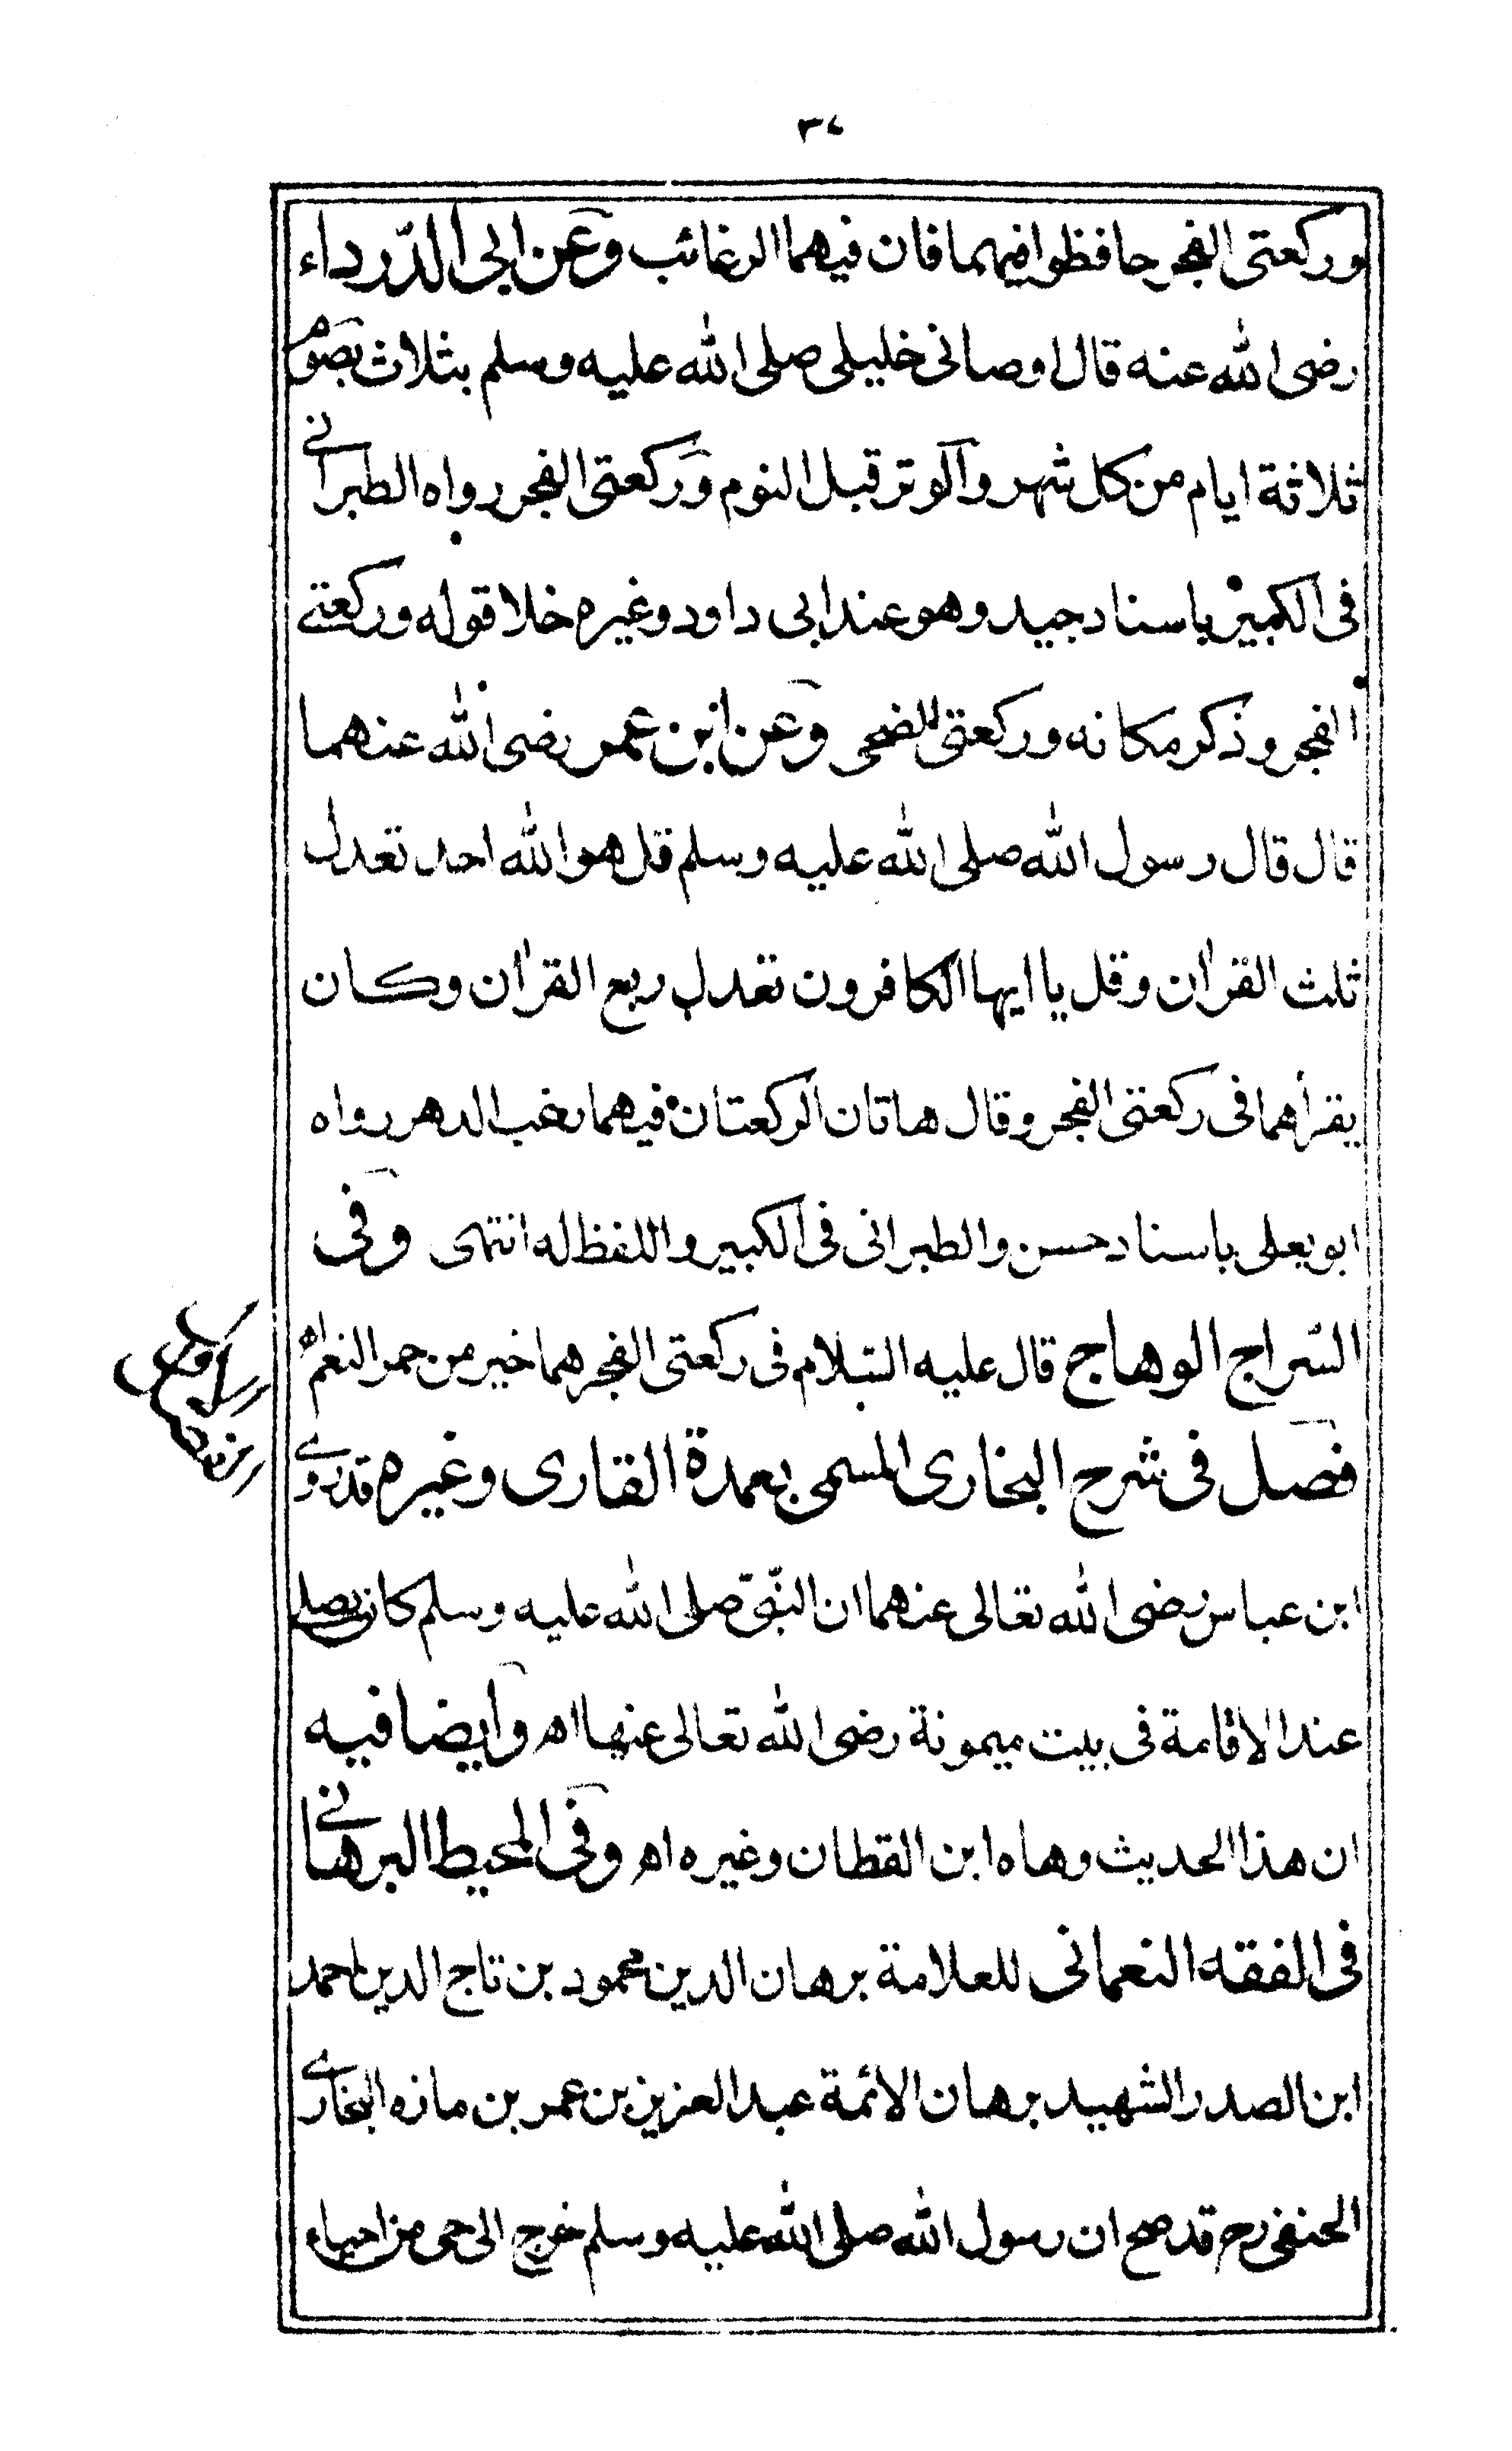 ٣٧
وركعتى الفجر حافظوا فيهما فان فيهما الرغائب وعن ابى الدّرداء
رضى الله عنه قال اوصانى خليلى صلى الله عليه وسلم بثلاث بصوم
ثلاثة ايام من كل شهر والوتر قبل النوم وركعتى الفجر رواه الطبرانى
فى الكبير باسناد جيد وهو عند ابى داود وغيره خلا قوله وركعتى
الفجر وذكر مكانه وركعتى الضحى وعن ابن عمر رضى الله عنهما
قال قال رسول الله صلى الله عليه وسلم قل هو الله احد تعدل
ثلث القرأن وقل يا ايها الكافرون تعدل ربع القرأن وكان
يقرأهما فى ركعتى الفجر وقال هاتان الركعتان فيهما رغب الدهر رواه
ابو يعلى باسناد حسن والطبرانى فى الكبير واللفظ له انتهى وفى
السّراج الوهاج قال عليه السّلام فى ركعتى الفجر هما خير من حمر النعم اه
فصل فى شرح البخارى المسمى بعمدة القارى وغيره قد روى
ابن عباس رضى الله تعالى عنهما ان النّبىّ صلى الله عليه وسلم كان يصلى
عند الاقامة فى بيت ميمونة رضى الله تعالى عنها اه وايضا فيه
ان هذا الحديث وهاه ابن القطان وغيره اه وفى المحيط البرهانى
فى الفقه النعمانى للعلامة برهان الدين محمود بن تاج الدين احمد
ابن الصدر الشهيد برهان الائمة عبد العزيز بن عمر بن مازه البخارى
الحنفى رح قد صح ان رسول الله صلى الله عليه وسلم خرج الى حى من احياء